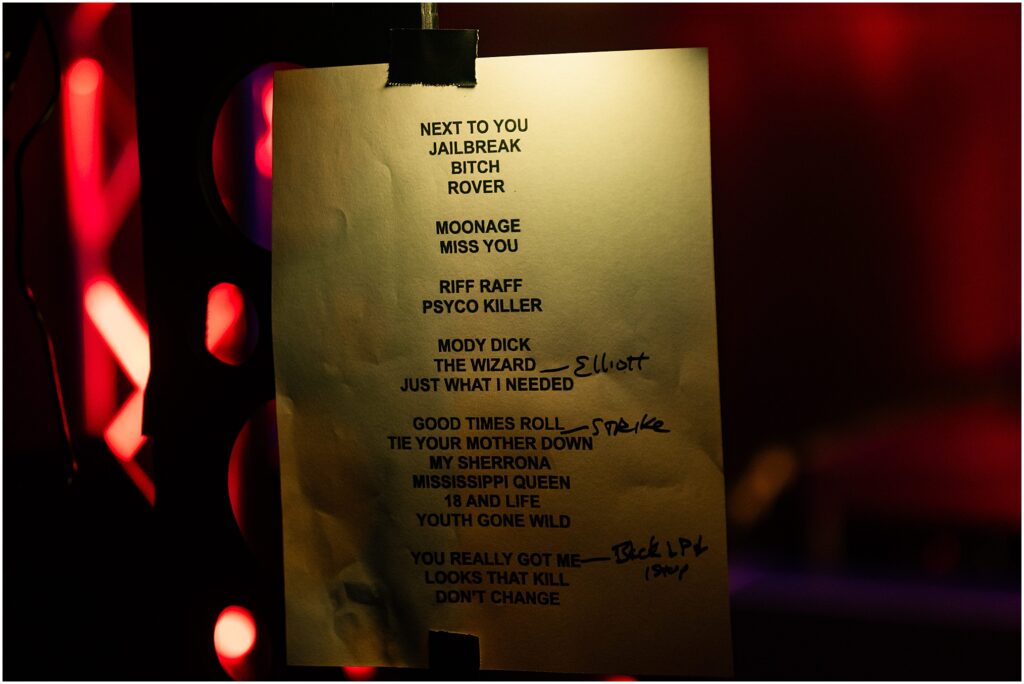 NEXT TO YOU
JAILBREAK
BITCH
ROVER
MOONAGE
MISS YOU
RIFF RAFF
PSYCO KILLER
MODY DICK
THE WIZARD — Elliott
JUST WHAT I NEEDED
GOOD TIMES ROLL — STRIKE
TIE YOUR MOTHER DOWN
MY SHERRONA
MISSISSIPPI QUEEN
18 AND LIFE
YOUTH GONE WILD
YOU REALLY GOT ME — Back
LOOKS THAT KILL
DON'T CHANGE